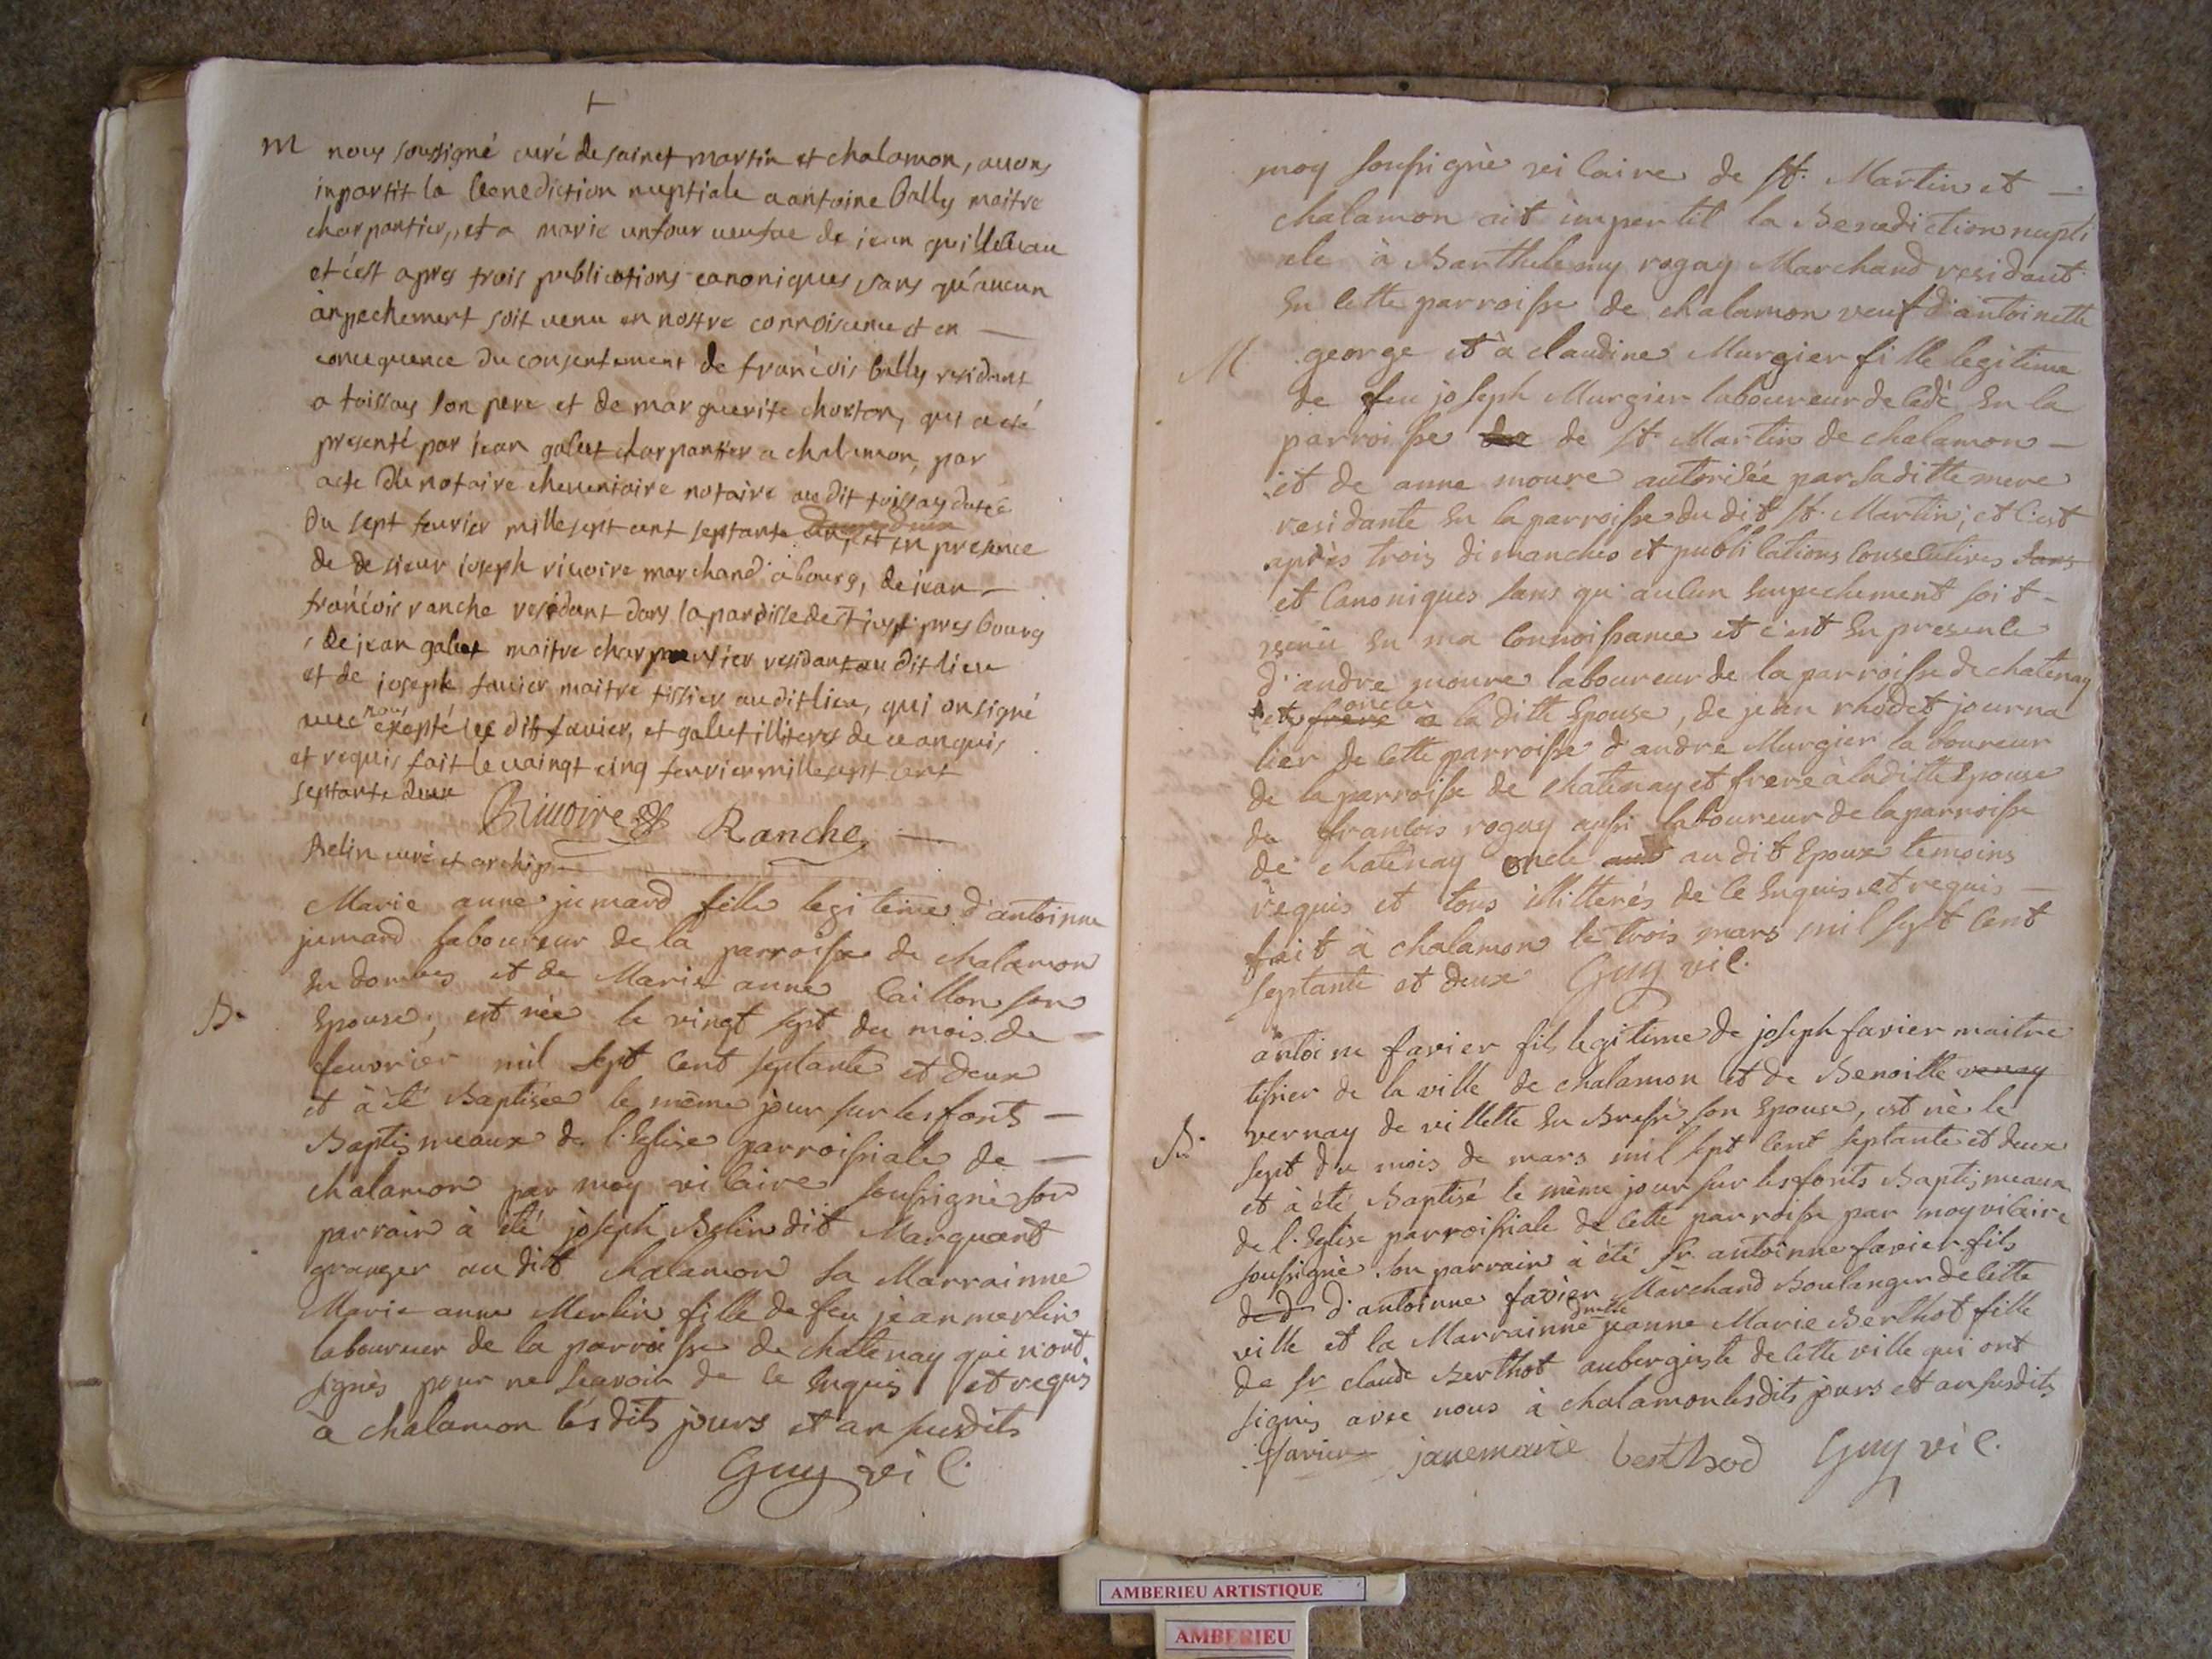 +
M nous soussigné curé de sainct martin et chalamon, auons
inpartit la benediction nuptiale a antoine bally maitre
charpantier, et a marie unfour ueufue de iean
et c'est apres trois publications canoniques sans qu'aucun
anpechement soit uenu en nostre connoiscence et en —
concequence du consentement de francois bally residant
a toissay son pere et de marguerite charton, qui a eté
presenté par iean galket charpantier a chalamon, par
acte du notaire notaire au dit toissay datée
du sept feurier mille sept cent septante et en presence
de de sieur ioseph riuoire marchand a bourg, de iean —
francois ranche residant dans la paroisse de st just pres bourg
, de jean galket maitre charpantier residant au dit lieu
et de joseph fauier maitre tissier au dit lieu, qui on signé
auec nous exepté les dit fauier, et galket illiterés de ce anquis
et requis fait le uaingt cinq feurier mille sept cent
septante deux
Riuoire Ranche —
Belin curé et archip.
Marie anne jumard fille legiteime d'antoinne
jumard laboureur de la parroisse de chalamon
en dombes et de Marie anne Caillon son
B. Epouse, est née le vingt sept du mois de —
feuvrier mil sept cent septante et deux
et à été Baptisée le même jour sur les fonts —
Baptismeaux de l'Eglise parroissiale de —
chalamon par moy vicaire soussigné son
parrain à été joseph Belin dit Marquant
granger au dit chalamon sa Marrainne
Marie anne Merlin fille de feu jean merlin
laboureur de la parroisse de chatenay qui n'ont
signés pour ne scavoir de ce enquis et requis
à chalamon lés dits jours et an susdits
Guy vic.
moy soussigné vicaire de st. Martin et —
chalamon ait impertit la Benediction nupti
ale à Barthelemy rogay Marchand residant
en cette parroisse de chalamon veuf d'antoinette
M george et à claudine Murgier fille legitime
de feu joseph Murgier laboureur decedé en la
parroisse de st. Martin de chalamon —
et de anne moure autorisée par sa ditte mere
residante en la parroisse du dit st. Martin, et c'est
après trois dimanches et publications consecutives sans
et canoniques sans qu'aucun empechement soit —
venu en ma connoissance et c'est en presence
d'andré moure laboureur de la parroisse de chatenay
et frere oncle a la ditte Epouse, de jean rhodet journa
lier de cette parroisse d'andré Murgier laboureur
de la parroisse de chatenay et frere à la ditte Epouse
de francois rogay aussi laboureur de la parroisse
de chatenay oncle au dit Epoux temoins
requis et tous illitterés de ce enquis et requis —
fait à chalamon le trois mars mil sept cent
septante et deux Guy vic.
antoine favier fils legitime de joseph favier maitre
tissier de la ville de chalamon et de Benoitte venay
B. vernay de villette en Bresse son Epouse, est né le
sept du mois de mars mil sept cent septante et deux
et à été Baptisé le même jour sur les fonts Baptismeaux
de l'Eglise parroissiale de cette parroisse par moy vicaire
soussigné son parrain à été sr. antoinne favier fils
de d d'antoinne favier Marchand Boulanger de cette
ville et la Marrainne dmlle jeanne Marie Berthot fille
de sr claude Berthot aubergiste de cette ville qui ont
signés avec nous à chalamon lesdits jours et an susdits
favier janemarie berthod Guy vic.
AMBERIEU ARTISTIQUE
AMBERIEU